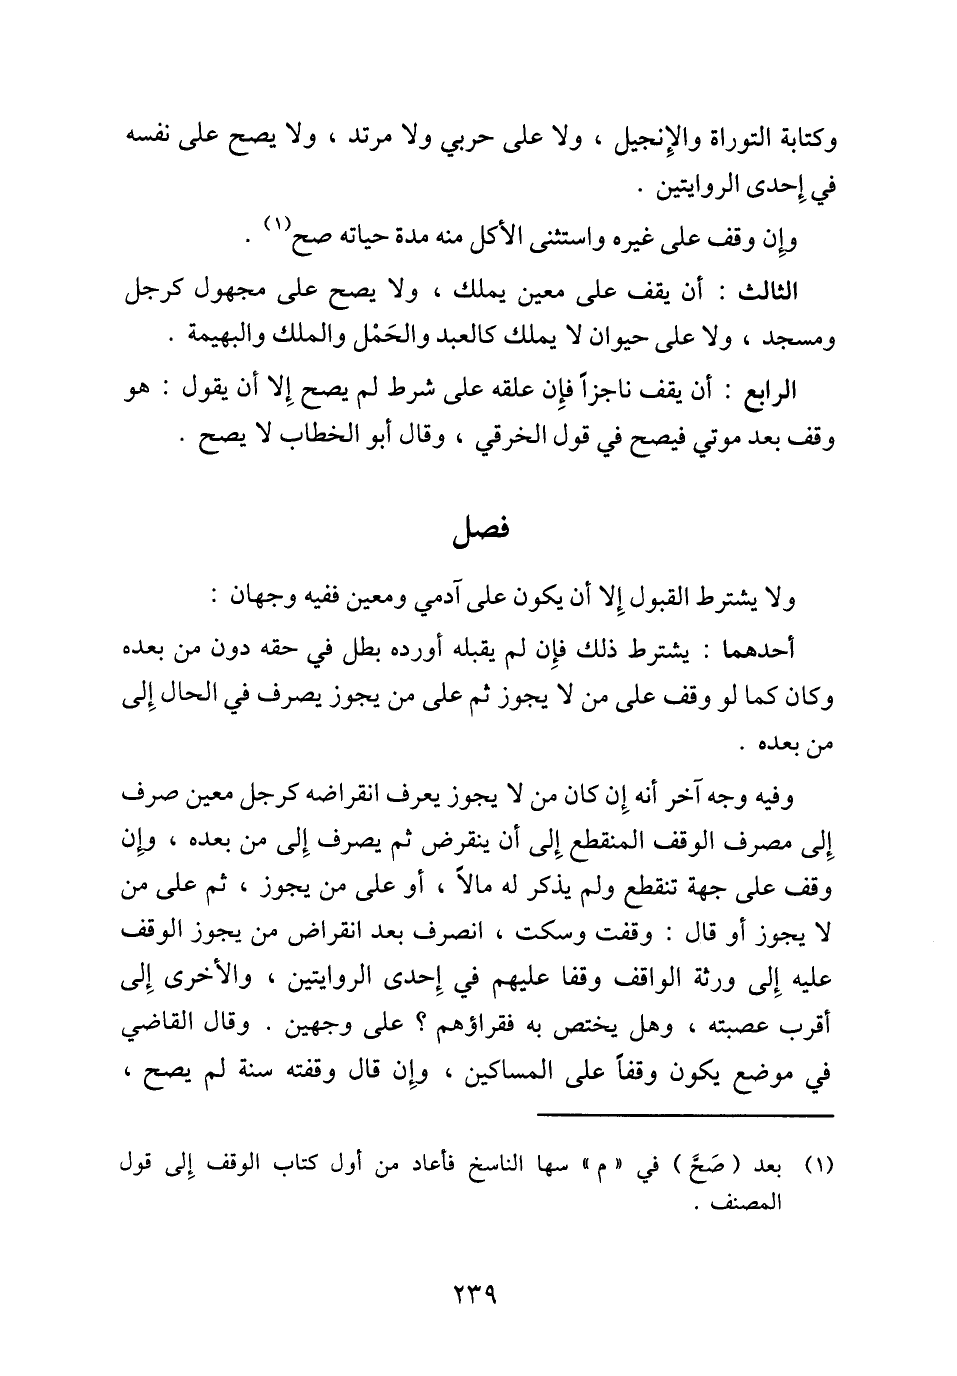 وكتابة التوراة والإنجيل ، ولا على حربي ولا مرتد ، ولا يصح على نفسه
في إحدى الروايتين .
وإن وقف على غيره واستثنى الأكل منه مدة حياته صح(١) .
الثالث : أن يقف على معين يملك ، ولا يصح على مجهول كرجل
ومسجد ، ولا على حيوان لا يملك كالعبد والحَمْل والملك والبهيمة .
الرابع : أن يقف ناجزاً فإن علقه على شرط لم يصح إلا أن يقول : هو
وقف بعد موتي فيصح في قول الخرقي ، وقال أبو الخطاب لا يصح .
فصل
ولا يشترط القبول إلا أن يكون على آدمي ومعين ففيه وجهان :
أحدهما : يشترط ذلك فإن لم يقبله أورده بطل في حقه دون من بعده
وكان كما لو وقف على من لا يجوز ثم على من يجوز يصرف في الحال إلى
من بعده .
وفيه وجه آخر أنه إن كان من لا يجوز يعرف انقراضه كرجل معين صرف
إلى مصرف الوقف المنقطع إلى أن ينقرض ثم يصرف إلى من بعده ، وإن
وقف على جهة تنقطع ولم يذكر له مالاً ، أو على من يجوز ، ثم على من
لا يجوز أو قال : وقفت وسكت ، انصرف بعد انقراض من يجوز الوقف
عليه إلى ورثة الواقف وقفا عليهم في إحدى الروايتين ، والأخرى إلى
أقرب عصبته ، وهل يختص به فقراؤهم ؟ على وجهين . وقال القاضي
في موضع يكون وقفاً على المساكين ، وإن قال وقفته سنة لم يصح ،
(١) بعد ( صَحَّ ) في « م » سها الناسخ فأعاد من أول كتاب الوقف إلى قول
المصنف .
٢٣٩